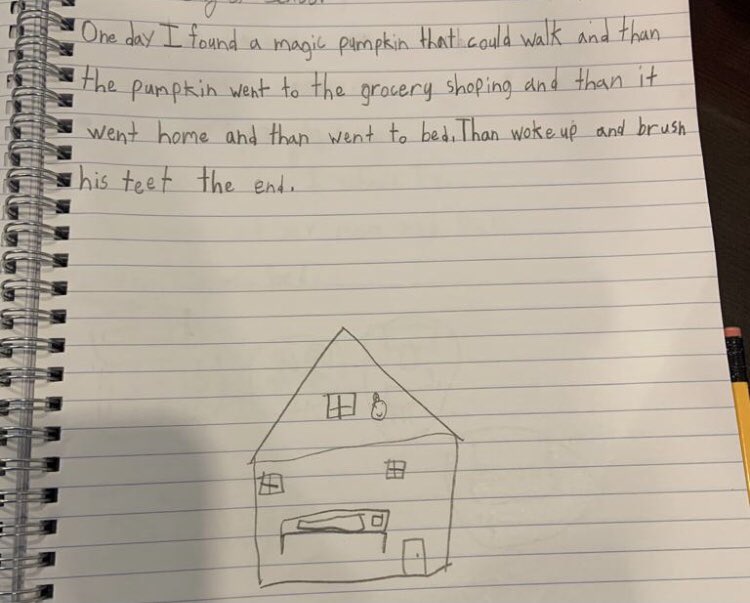 One day I found a magic pumpkin that could walk and than
the pumpkin went to the grocery shoping and than it
went home and than went to bed. Than woke up and brush
his teet the end.